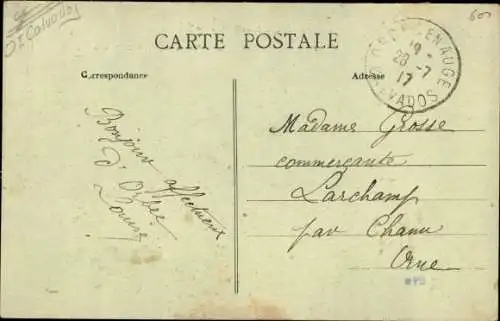 Dt Calvados
600
CARTE POSTALE
Correspondance
Adresse
EN AUGE
19
28 -7
17
CALVADOS
Bonjour affectueux
d'Orbec
Louise
Madame Grosse
commerçante
Larchamp
par Chanu
Orne